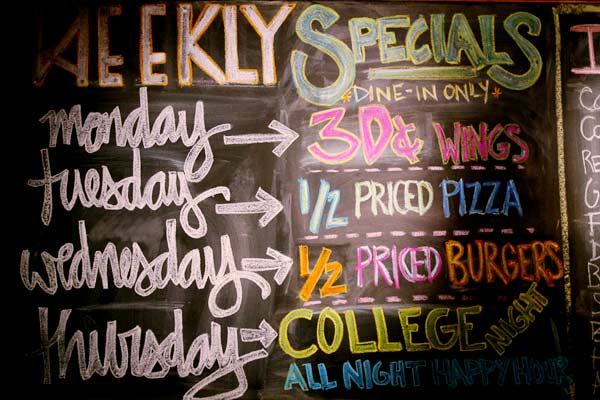 WEEKLY SPECIALS
*DINE-IN ONLY*
monday → 30¢ WINGS
tuesday → 1/2 PRICED PIZZA
wednesday → 1/2 PRICED BURGERS
thursday → COLLEGE NIGHT
ALL NIGHT HAPPY HOUR